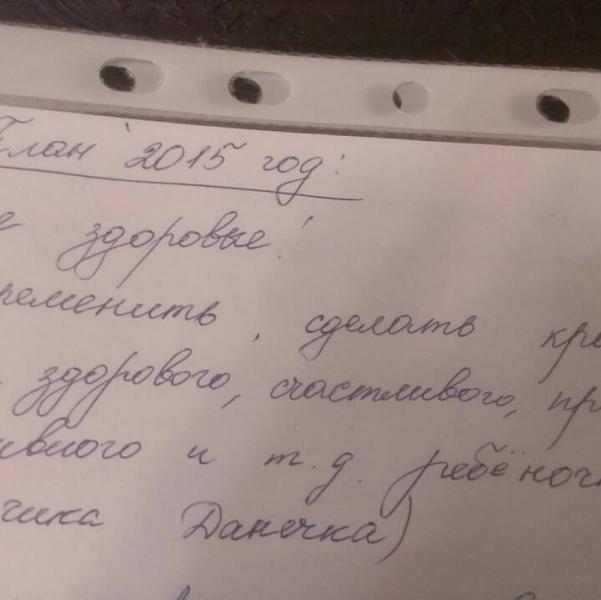 План 2015 год:
е здоровье!
ременить, сделать кра
здорового, счастливого, пр
ивного и т.д. ребёночк
чика Данечка)